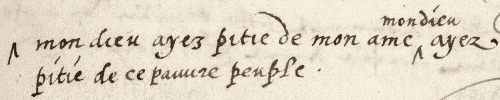 mondieu
mon dieu ayez pitie de mon ame ayez
pitié de ce pauure peuple .